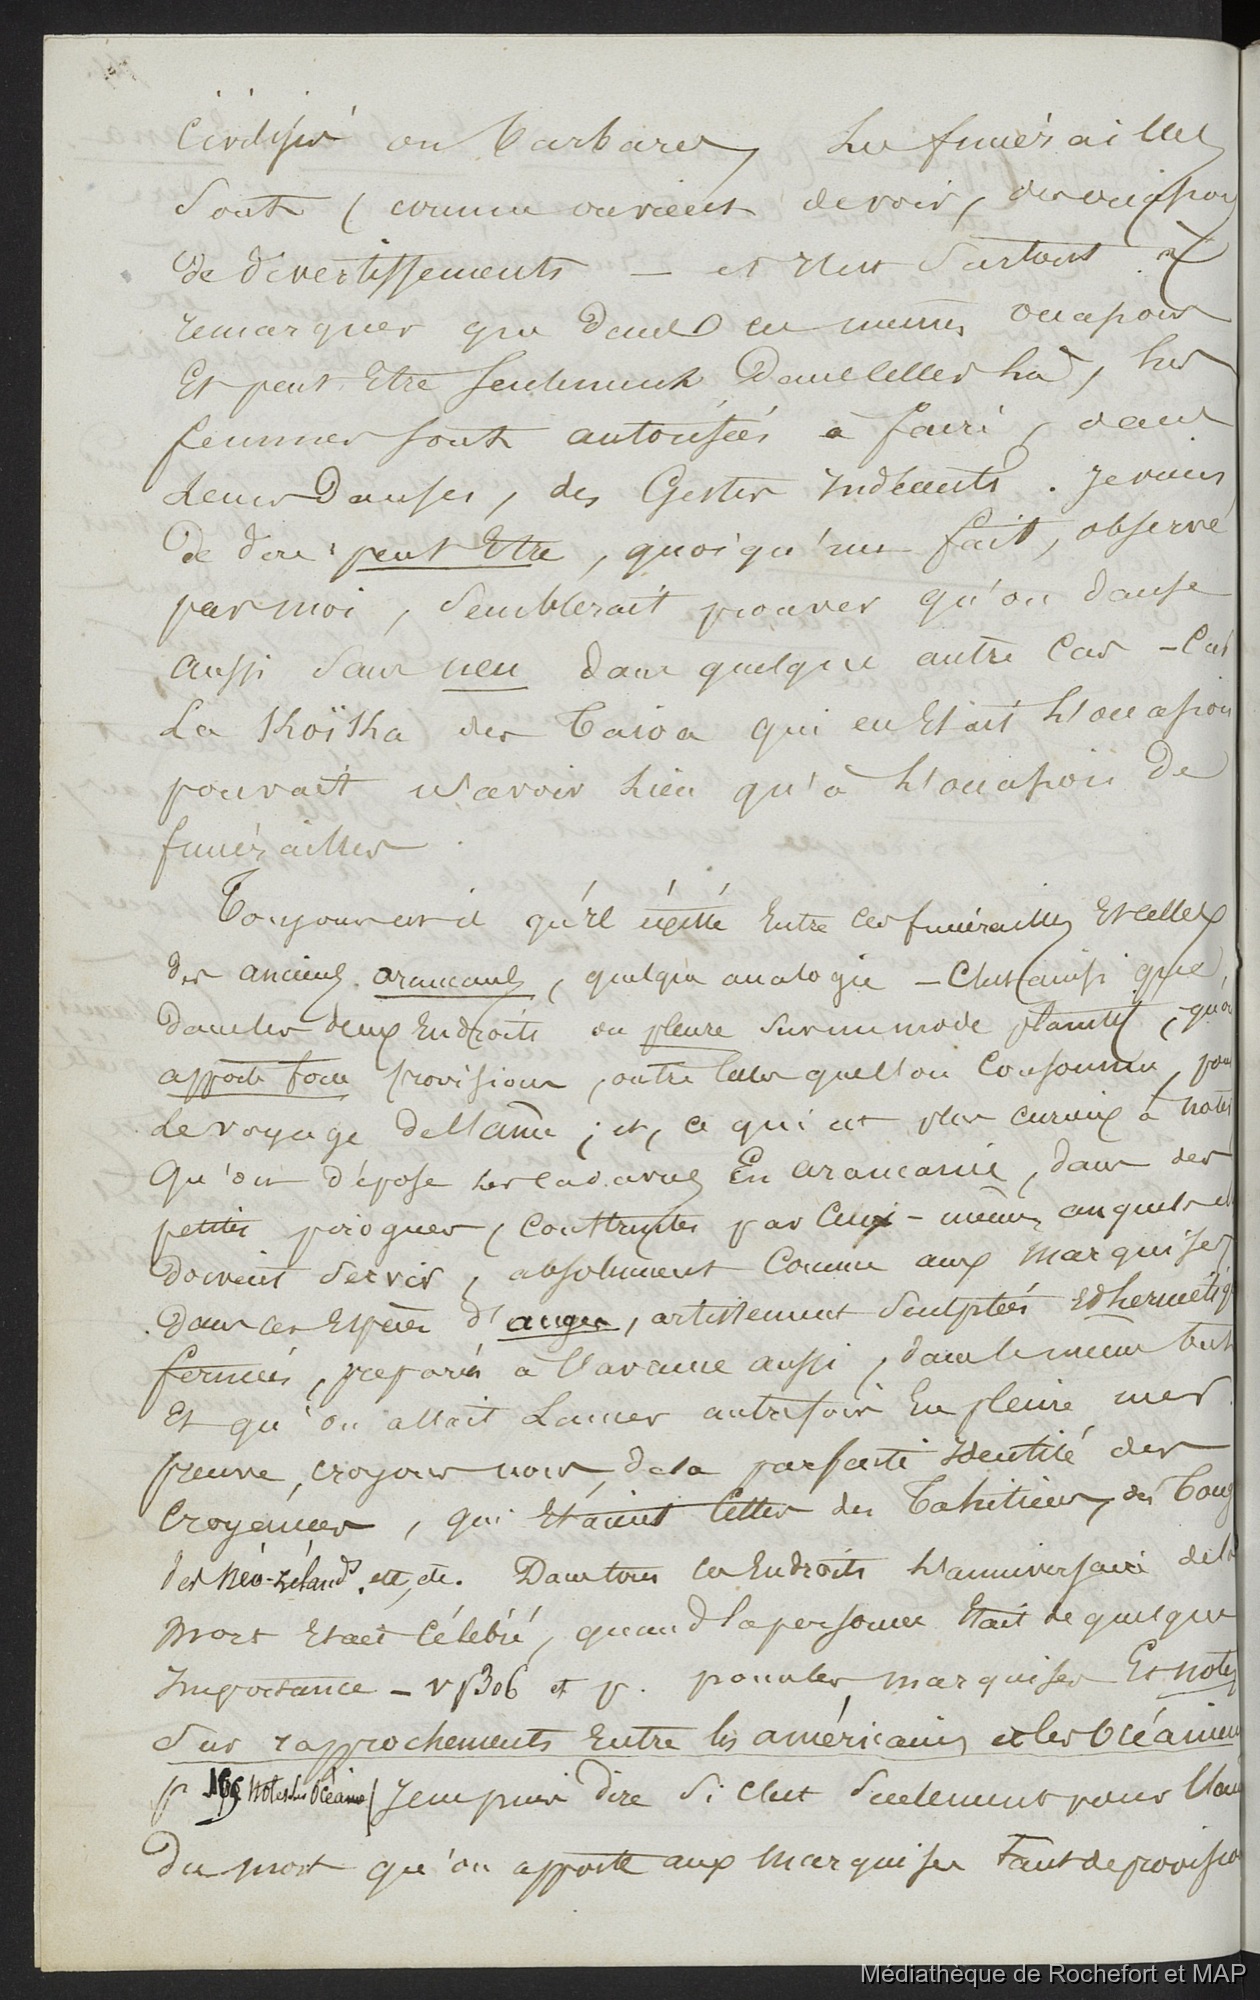 Civilisés ou barbares, les funérailles
sont (comme on vient de voir, des occasions
de divertissements — et c'est surtout à
remarquer que dans ces mêmes occasions
Et peut Etre seulement dans celles là, les
femmes sont autorisées à faire, dans
leurs Danses, des Gestes indécents. Je viens
De dire peut Etre, quoiqu'un fait, observé
par moi, semblerait prouver qu'on danse
aussi dans quelque autre cas — Car
La Koïka des Taioa qui en Etait l'occasion
pouvait n'avoir lieu qu'à l'occasion de
funérailles.
Toujours est il qu'il existe Entre ces funérailles Et celles
des anciens araucans, quelque analogie — C'est ainsi que
Dans les deux Endroits on pleure sur un mode plaintif, qu'on
apporte force provisions, outre celles que l'on consomme, pour
Le voyage de l'âme; et, ce qui est plus curieux à noter
Qu'on dépose les cadavres En araucanie, dans des
petites pirogues, construites par Ceux-mêmes auxquels elles
doivent servir, absolument comme aux Marquises,
Dans ces Espèces d'auges, artistement sculptées Et hermétiqt
fermées, préparées à l'avance aussi, dans le même but
Et qu'on allait lancer autrefois En pleine mer.
preuve, croyons nous, de la parfaite identité des
Croyances, qui Etaient celles des Tahitiens, des Tong
des Néo-Zéland.s etc, etc. Dans tous ces Endroits l'anniversaire de la
Mort Etait Célébré, quand la personne Etait de quelque
Importance — v p 306 et p. pour les marquises Et notes
Sur rapprochements Entre les américains et les Océaniens
p 195 notes sur Océanie) Je ne puis dire si c'est seulement pour l'âme
Du mort qu'on apporte aux Marquises tant de provisions